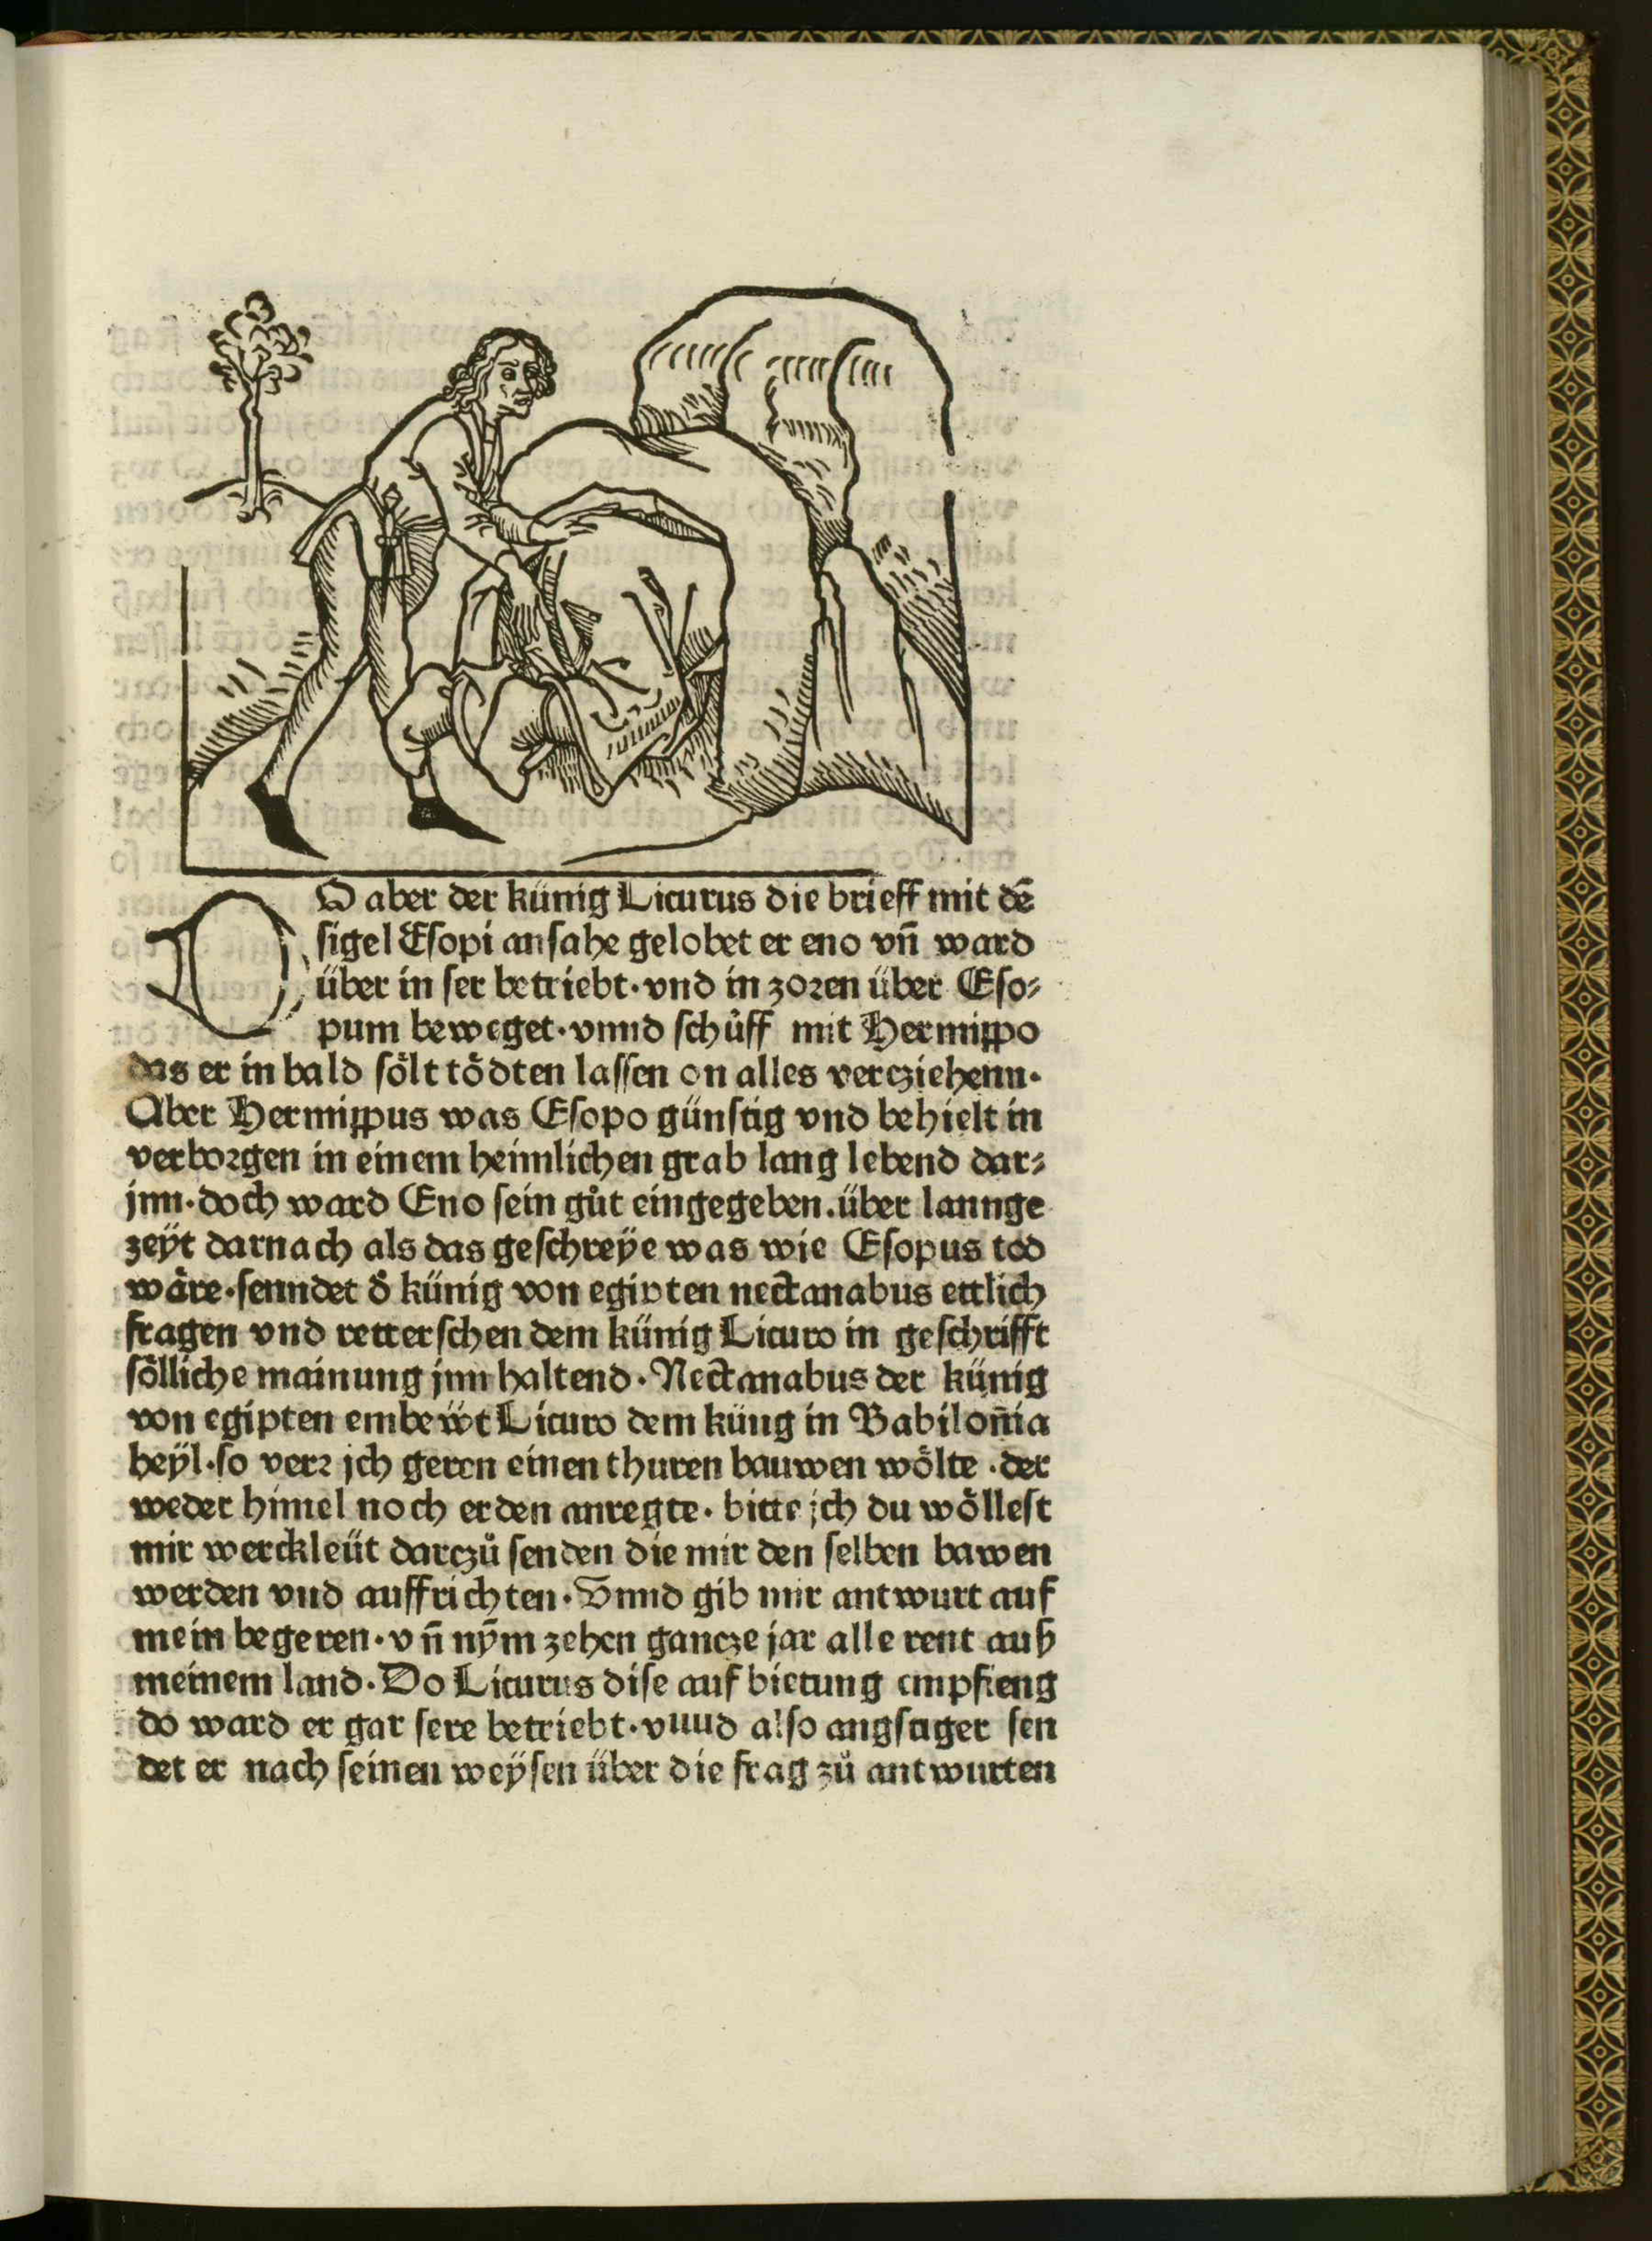 DO aber der künig Licurus die brieff mit dē
sigel Esopi ansahe gelobet er eno vñ ward
über in ser betriebt·vnd in zoꝛen über Eso⸗
pum beweget·vnnd schůff mit Hermippo
das er in bald sölt tödten lassen on alles vercziehenn·
Aber Hermippus was Esopo günstig vnd behielt in
verboꝛgen in einem heimlichen grab lang lebend dar⸗
jnn·doch ward Eno sein gůt eingegeben.über lannge
zeÿt darnach als das geschreÿe was wie Esopus tod
wäre·senndet d̊ künig von egipten nectanabus ettlich
fragen vnd retterschen dem künig Licuro in geschrifft
sölliche mainung jnn haltend·Nectanabus der künig
von egipten embewt Licuro dem küng in Babilon̄ia
heÿl·so verꝛ jch geren einen thuren bauwen wölte·der
weder himel noch erden anregte·bitte jch du wöllest
mir werckleüt darczů senden die mir den selben bawen
werden vnd auffrichten·Vnnd gib mir antwurt auf
mein begeren·vñ nȳm zehen gancze jar alle rent auß
meinem land·Do Licurus dise aufbietung empfieng
do ward er gar sere betriebt·vuud also angstiger sen
det er nach seinen weÿsen über die frag zů antwurten